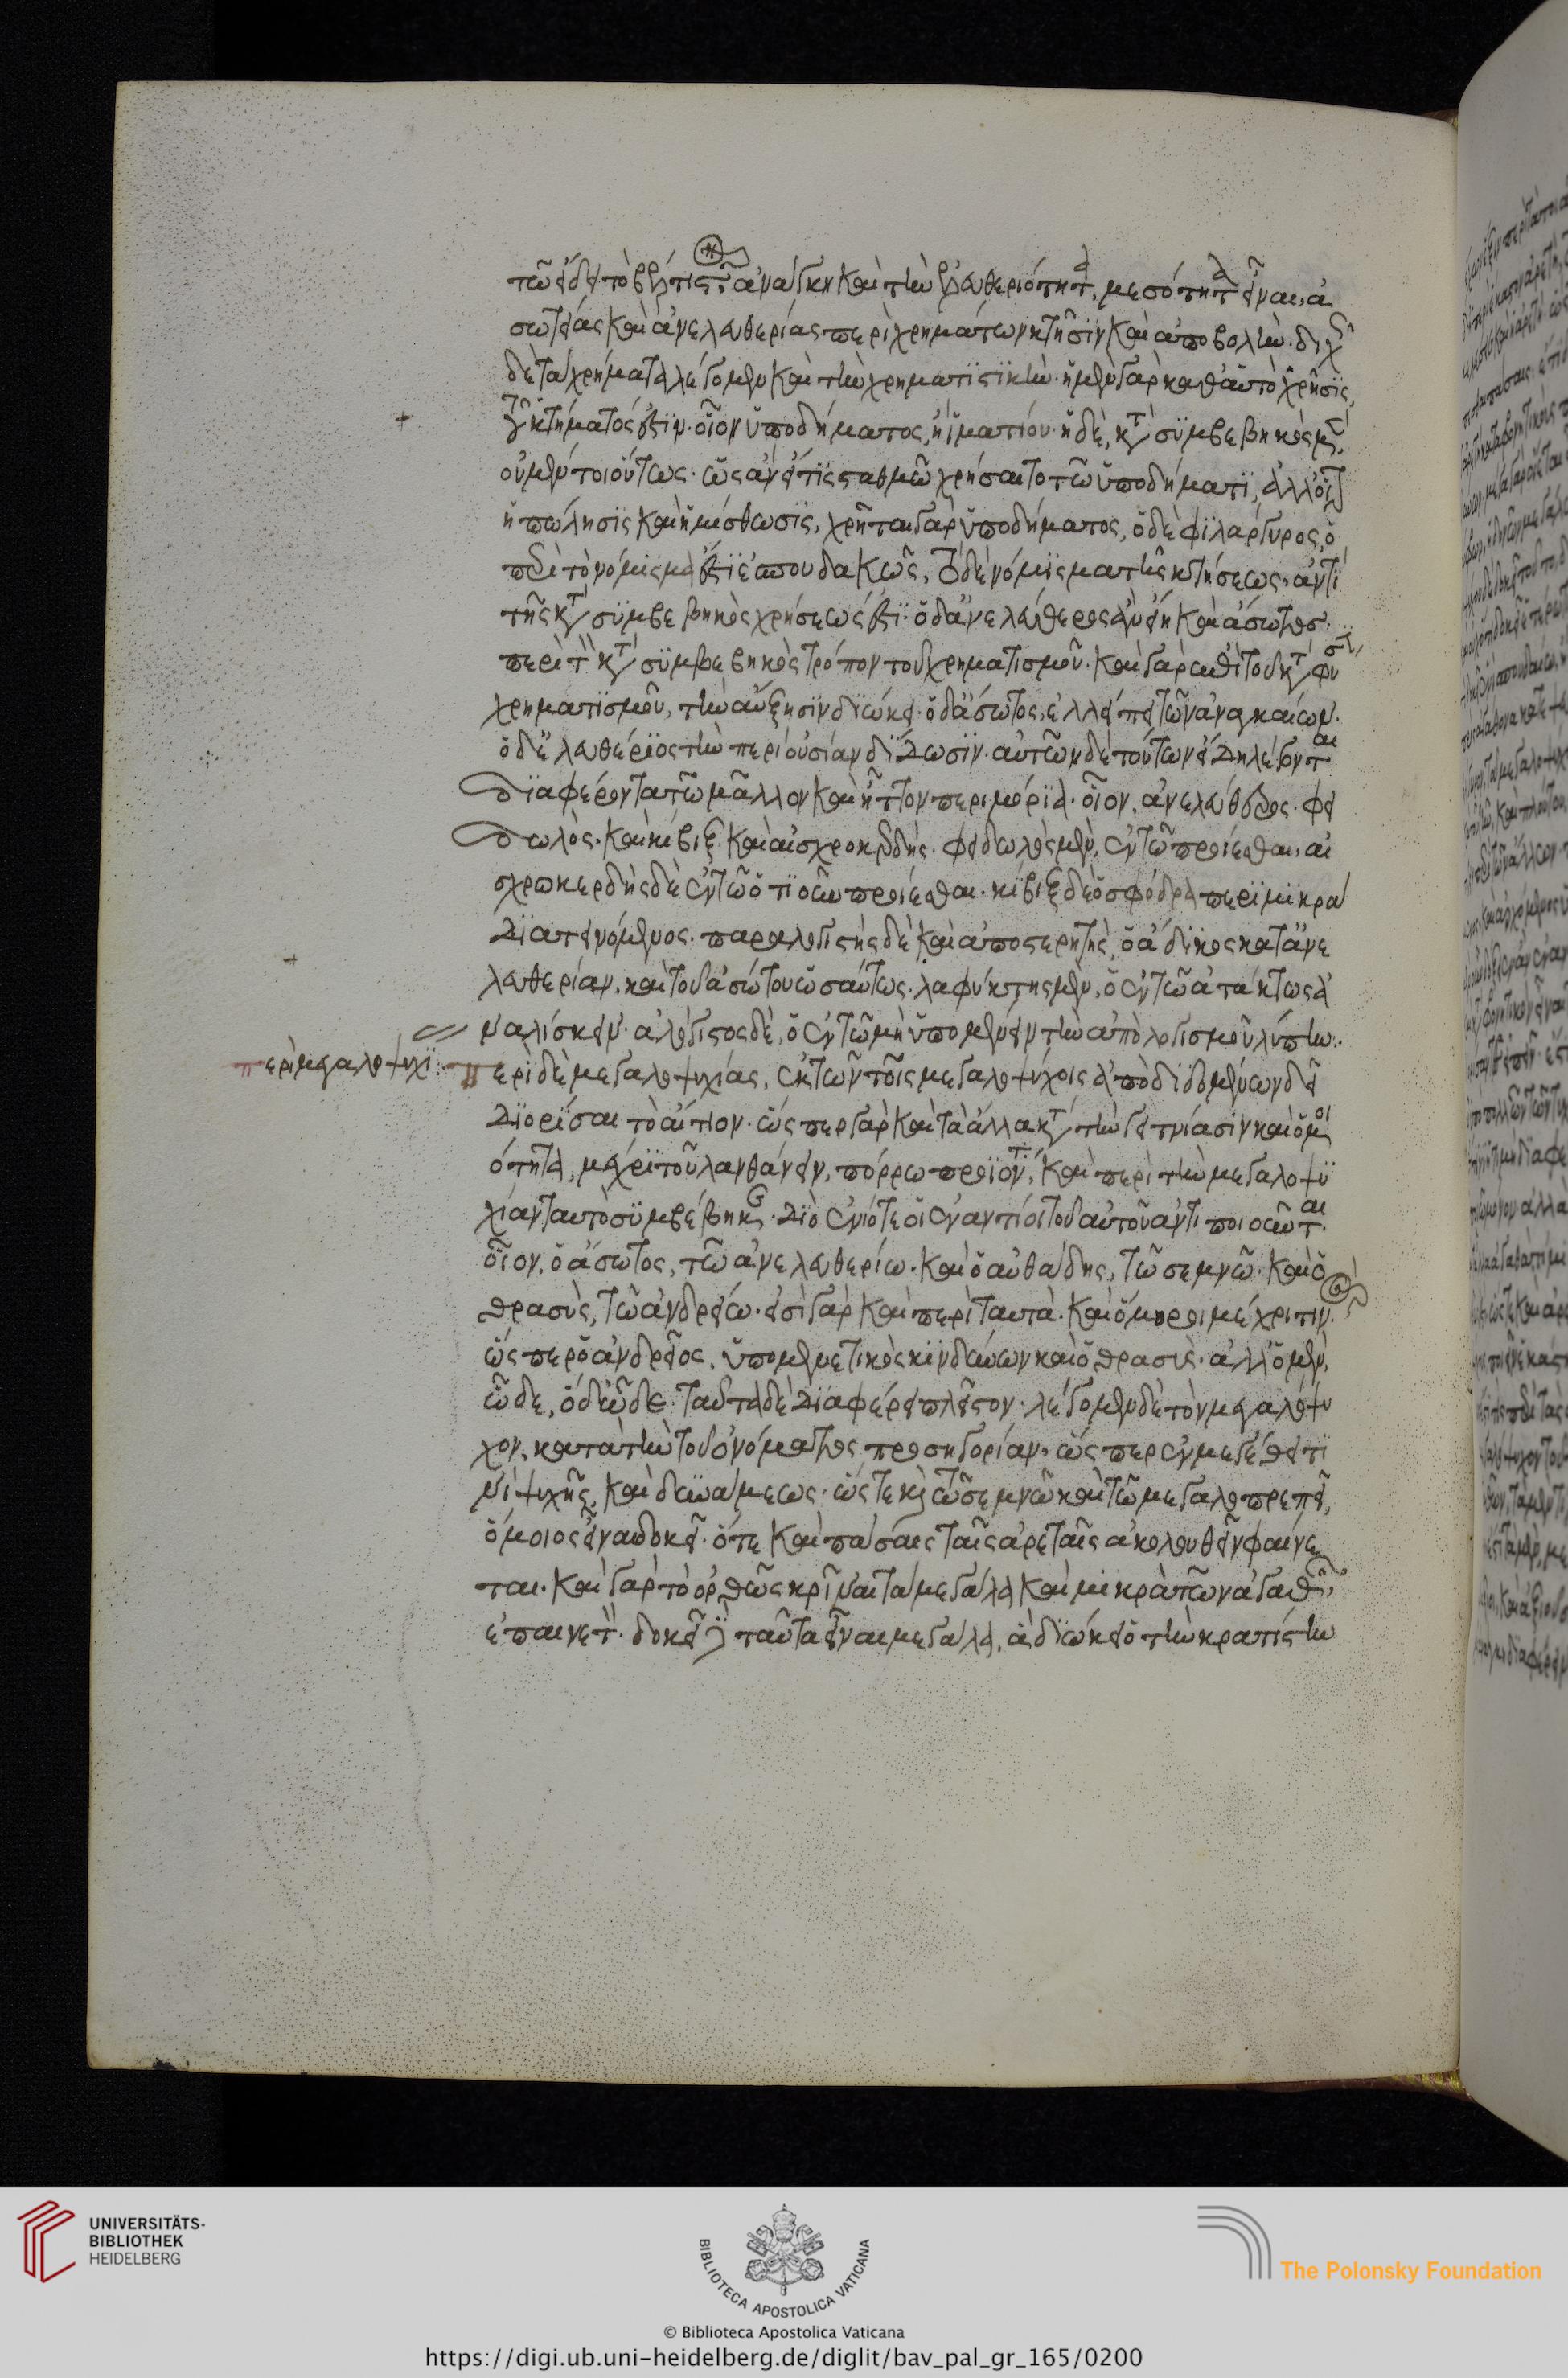 τῶ εἴδει τὸ βέλτιστον ἀνάγκη καὶ τὴν ἐλευθεριότητα, μεσότητα εἶναι, ἀ
σωτείας καὶ ἀνελευθερίας περὶ χρημάτων κτῆσιν καὶ ἀποβολήν. διχῶς
δὲ τὰ χρήματα λέγομεν καὶ τὴν χρηματιστικήν. ἡ μὲν γὰρ καθ' αὑτὸ χρῆσις,
τοῦ κτήματός ἐστιν. οἷον ὑποδήματος, ἢ ἱματίου. ἡ δὲ, κατὰ συμβεβηκὸς μὲν,
οὐ μέντοι οὕτως. ὡς ἂν εἴ τις σταθμῶ χρήσαιτο τῶ ὑποδήματι, ἀλλ' οἷον
ἡ πώλησις καὶ ἡ μίσθωσις, χρῆται γὰρ ὑποδήματος, ὁ δὲ φιλάργυρος, ὁ
περὶ τὸ νόμισμά ἐστι ἐσπουδακὼς, τὸ δὲ νόμισμα τῆς κτήσεως, ἀντὶ
τῆς κατὰ συμβεβηκὸς χρήσεώς ἐστι. ὁ δ' ἀνελεύθερος ἂν εἴη καὶ ἄσωτος
περὶ τὸν κατὰ συμβεβηκὸς τρόπον τοῦ χρηματισμοῦ. καὶ γὰρ ἐπὶ τοῦ κατὰ φύσιν
χρηματισμοῦ, τὴν αὔξησιν διώκει. ὁ δ' ἄσωτος, ἐλλείπει τῶν ἀναγκαίων.
ὁ δ' ἐλευθέριος τὴν περιουσίαν δίδωσιν. αὐτῶν δὲ τούτων εἴδη λέγονται
διαφέροντα τῶ μᾶλλον καὶ ἧττον περὶ μόρια. οἷον, ἀνελεύθερος. φει
δωλὸς. καὶ κίβιξ. καὶ αἰσχροκερδής. φειδωλὸς μὲν, ἐν τῶ προίεσθαι. αἰ
σχροκερδὴς δὲ ἐν τῶ ὁτιοῦν προίεσθαι. κίβιξ δὲ ὁ σφόδρα περὶ μικρὰ
διατεινόμενος. παραλογιστὴς δὲ καὶ ἀποστερητὴς, ὁ ἄδικος κατ' ἀνε
λευθερίαν. καὶ τοῦ ἀσώτου ὡσαύτως. λαφύκτης μὲν, ὁ ἐν τῶ ἀτάκτως ἀ
ναλίσκειν. ἀλόγιστος δὲ, ὁ ἐν τῶ μὴ ὑπομένειν τὴν ἀπὸ λογισμοῦ λύπην.
περὶ μεγαλοψυχί
περὶ δὲ μεγαλοψυχίας, ἐκ τῶν τοῖς μεγαλοψύχοις ἀποδιδομένων δεῖ
διορίσαι τὸ αἴτιον. ὥσπερ γὰρ καὶ τὰ ἄλλα κατὰ τὴν γειτνίασιν καὶ ὁμοι
ότητα, μέχρι τοῦ λανθάνειν, πόρρω προϊόντα, καὶ περὶ τὴν μεγαλοψυ
χίαν ταυτὸ συμβέβηκεν. διὸ ἐνίοτε οἱ ἐναντίοι τοῦ αὐτοῦ ἀντιποιοῦνται.
οἷον, ὁ ἄσωτος, τῶ ἀνελευθερίω. καὶ ὁ αὐθάδης, τῶ σεμνῶ. καὶ ὁ
θρασὺς, τῶ ἀνδρείω. εἰσὶ γὰρ καὶ περὶ ταυτὰ. καὶ ὅμοροι μέχρι τινός.
ὥσπερ ὁ ἀνδρεῖος, ὑπομενετικὸς κινδύνων καὶ ὁ θρασὺς. ἀλλ' ὁ μὲν,
ὧδε, ὁ δ' ὧδε. ταῦτα δὲ διαφέρει πλεῖστον. λέγομεν δὲ τὸν μεγαλόψυ
χον, κατὰ τὴν τοῦ ὀνόματος προσηγορίαν, ὥσπερ ἐν μεγέθει τι
νὶ ψυχῆς, καὶ δυνάμεως. ὥστε καὶ τῶ σεμνῶ καὶ τῶ μεγαλοπρεπεῖ,
ὅμοιος εἶναι δοκεῖ. ὅτε καὶ πάσαις ταῖς ἀρεταῖς ἀκολουθεῖν φαίνε
ται. καὶ γὰρ τὸ ὀρθῶς κρῖναι τὰ μεγάλα καὶ μικρὰ τῶν ἀγαθῶν,
ἐπαινετόν. δοκεῖ δὲ ταῦτα εἶναι μεγάλα, ἃ διώκει ὁ τὴν κρατίστην
UNIVERSITÄTS-
BIBLIOTHEK
HEIDELBERG
BIBLIOTECA APOSTOLICA VATICANA
The Polonsky Foundation
© Biblioteca Apostolica Vaticana
https://digi.ub.uni-heidelberg.de/diglit/bav_pal_gr_165/0200